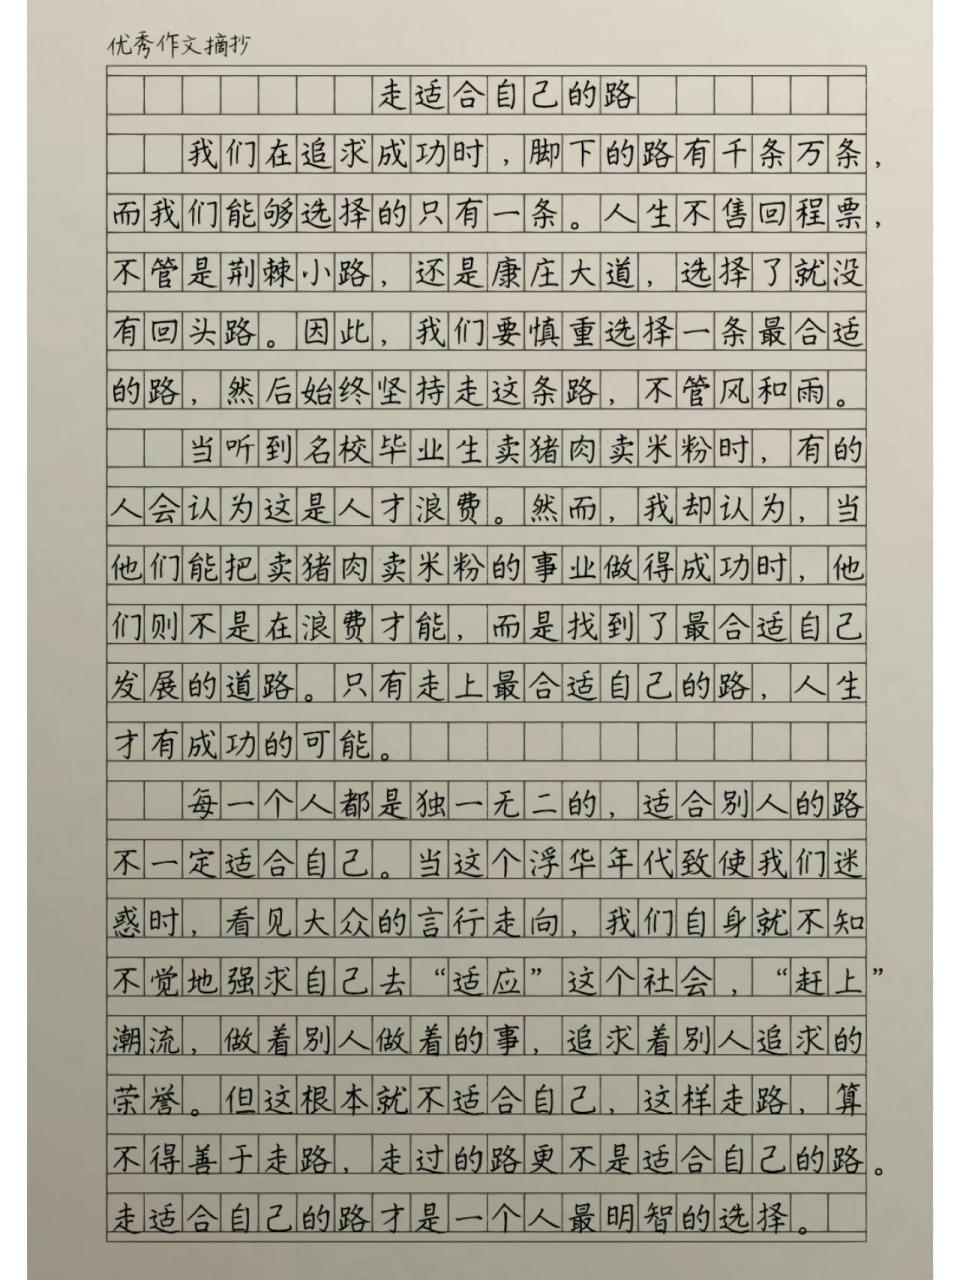 优秀作文摘抄
走适合自己的路
我们在追求成功时，脚下的路有千条万条，
而我们能够选择的只有一条。人生不售回程票，
不管是荆棘小路，还是康庄大道，选择了就没
有回头路。因此，我们要慎重选择一条最合适
的路，然后始终坚持走这条路，不管风和雨。
当听到名校毕业生卖猪肉卖米粉时，有的
人会认为这是人才浪费。然而，我却认为，当
他们能把卖猪肉卖米粉的事业做得成功时，他
们则不是在浪费才能，而是找到了最合适自己
发展的道路。只有走上最合适自己的路，人生
才有成功的可能。
每一个人都是独一无二的，适合别人的路
不一定适合自己。当这个浮华年代致使我们迷
惑时，看见大众的言行走向，我们自身就不知
不觉地强求自己去“适应”这个社会，“赶上”
潮流，做着别人做着的事，追求着别人追求的
荣誉。但这根本就不适合自己，这样走路，算
不得善于走路，走过的路更不是适合自己的路。
走适合自己的路才是一个人最明智的选择。